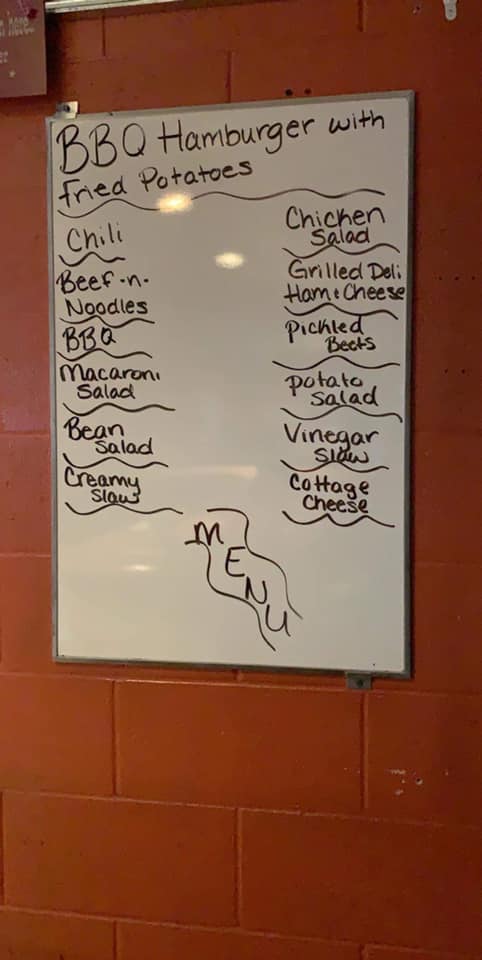 here
BBQ Hamburger with
fried Potatoes
Chili
Beef-n-
Noodles
BBQ
Macaroni
Salad
Bean
Salad
Creamy
Slaw
Chicken
Salad
Grilled Deli
Ham & Cheese
Pickled
Beets
potato
Salad
Vinegar
Slaw
Cottage
Cheese
MENU